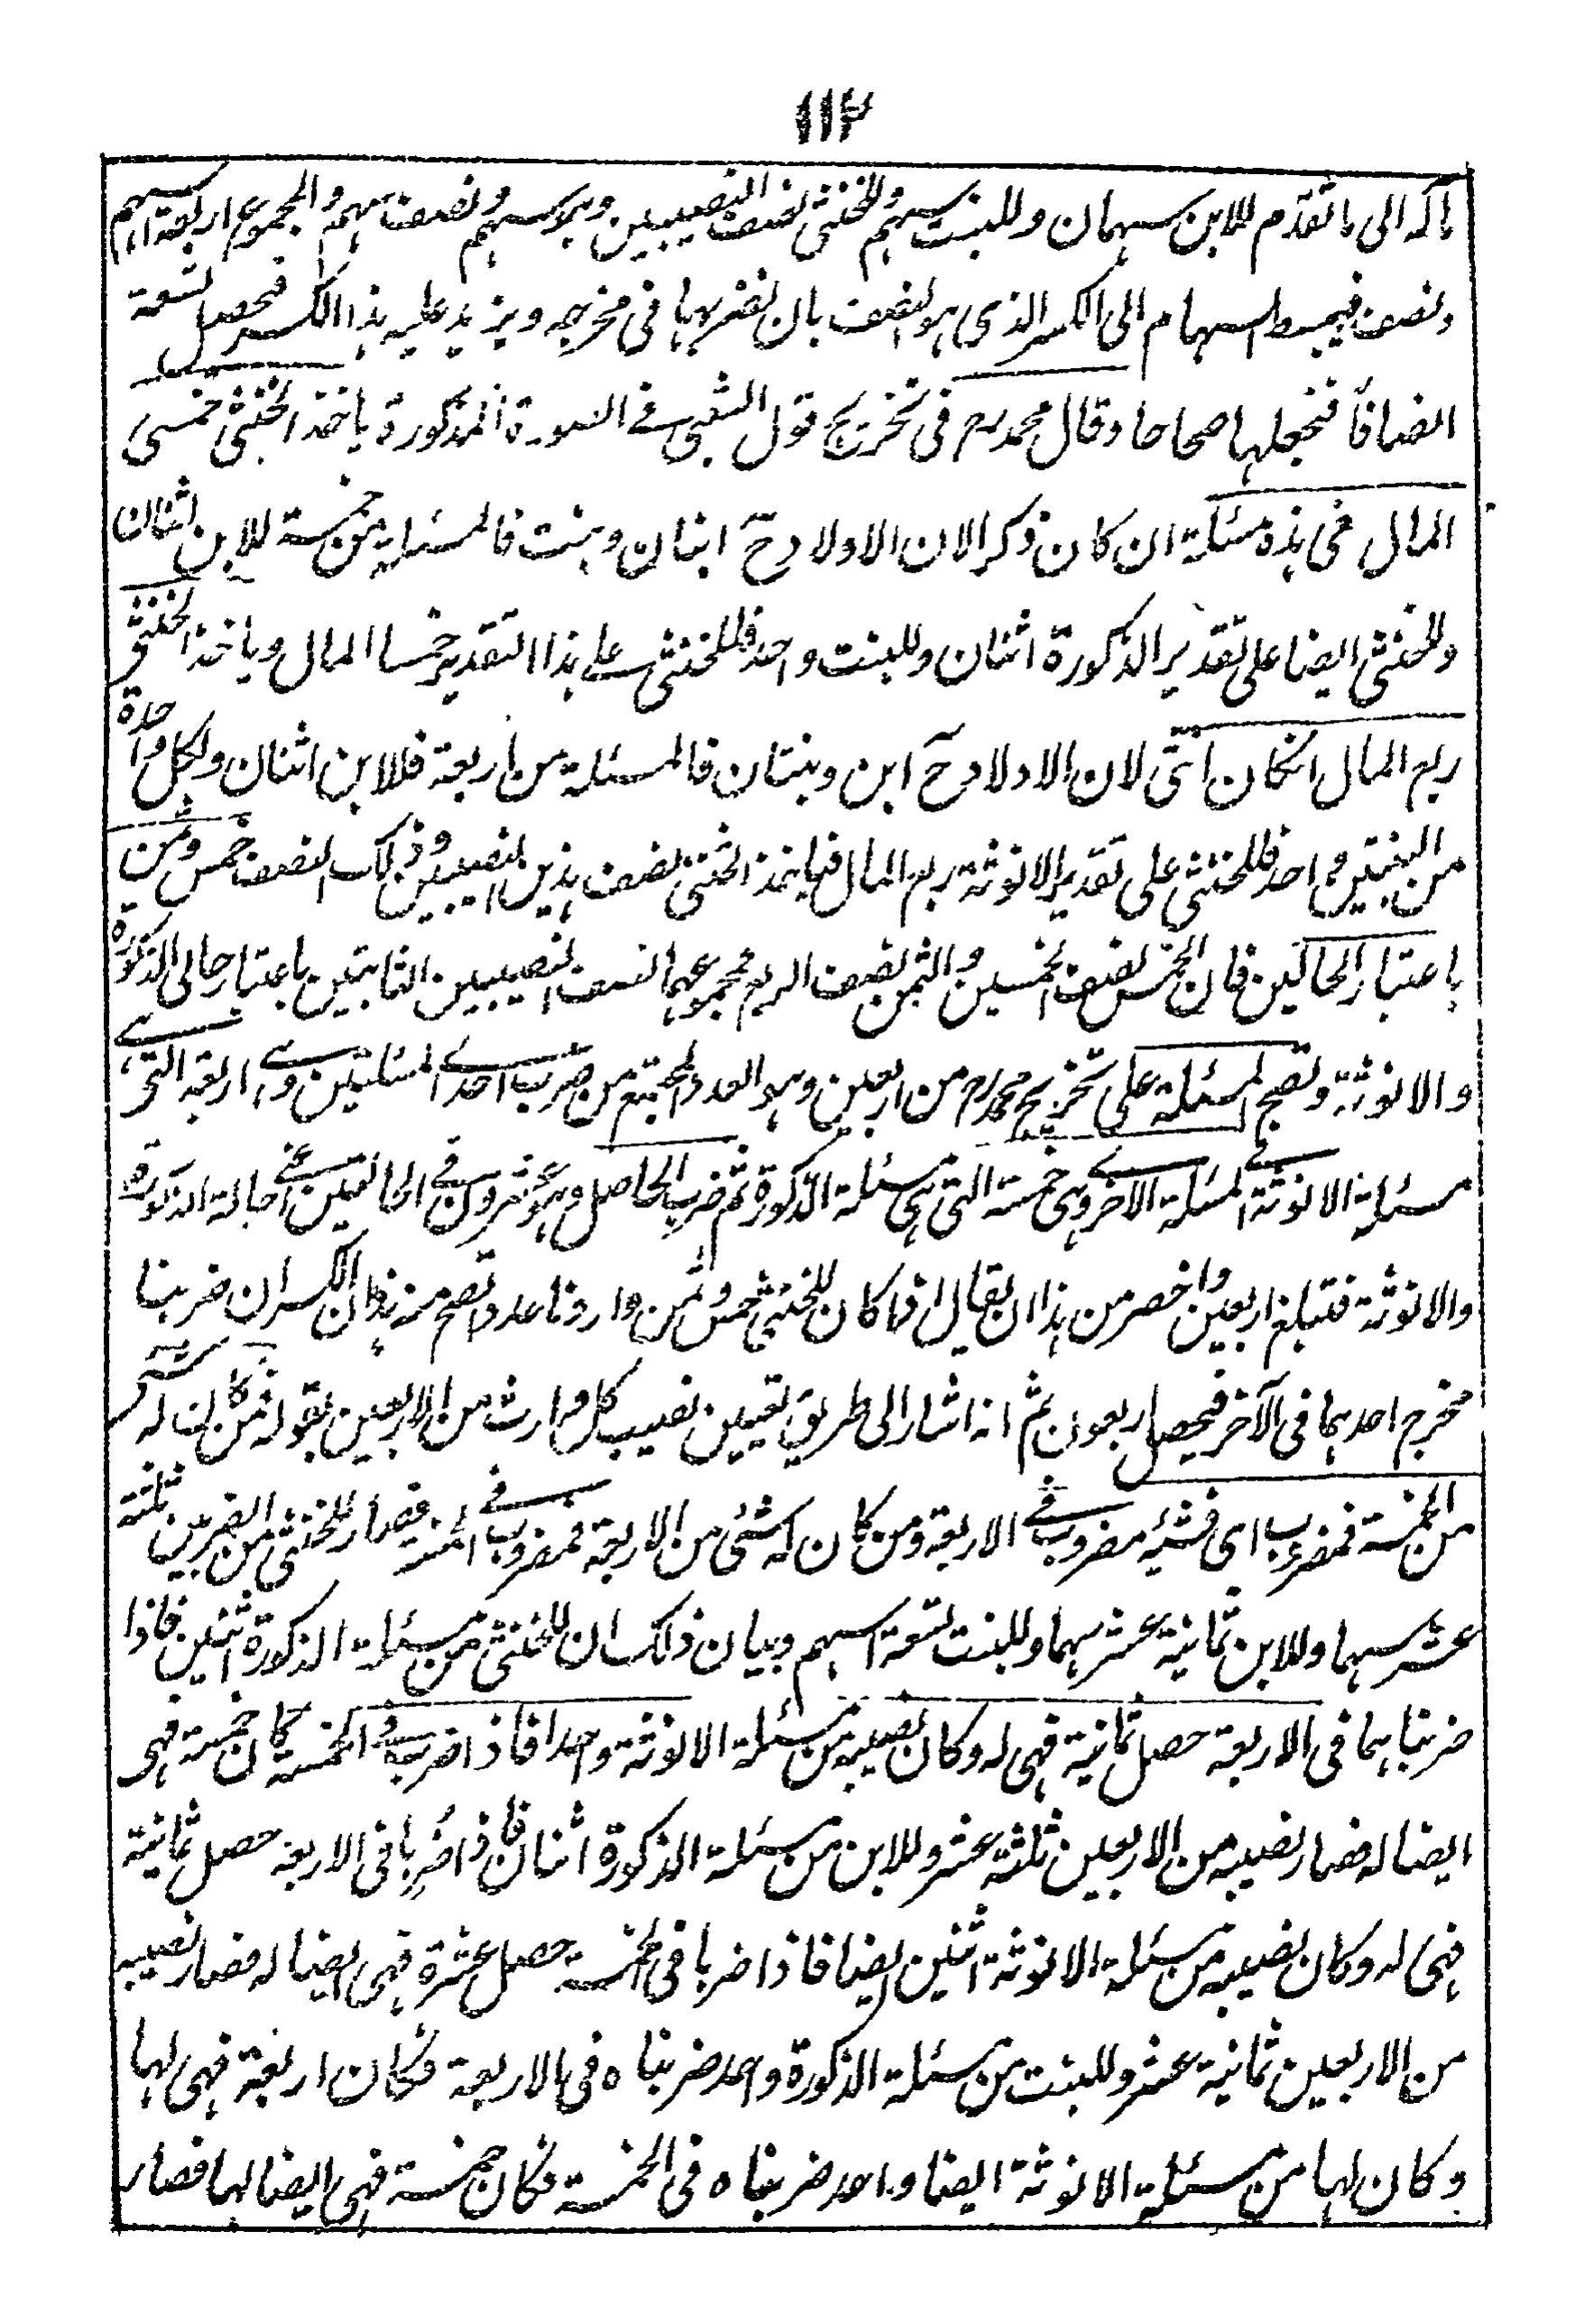 ١١٢
مآله الى ما تقدم للابن سهمان وللبنت سهم وللخنثى نصف النصيبين وهو سهم ونصف سهم والمجموع اربعة اسهم
ونصف فيبسط السهام الى الكسر الذى هو النصف بان نضربها فى مخرجه ويزيد عليه هذا الكسر فحصل تسعة
انصافا فنجعلها صحاحا وقال محمد رح فى تخريج قول الشعبى فى الصورة المذكورة ياخذ الخنثى خمسى
المال فى هذه مسئلة ان كان ذكرا لان الاولاد ح ابنان وبنت فالمسئلة من خمسة للابن اثنان
وللخنثى ايضا على تقدير الذكورة اثنان وللبنت واحد فللخنثى على هذا التقدير خمسا المال وياخذ الخنثى
ربع المال انكان انثى لان الاولاد ح ابن وبنتان فالمسئلة من اربعة فللابن اثنان ولكل واحدة
من البنتين واحد فللخنثى على تقدير الانوثة ربع المال فياخذ الخنثى نصف هذين النصيبين وذلك النصف خمس وثمن
باعتبار الحالين فان الخمس نصف الخمسين والثمن نصف الربع فمجموعهما نصف النصيبين الثابتين باعتبار حالى الذكورة
والانوثة وتصح المسئلة على تخريج محمد رح من اربعين وهو العدد المجتمع من ضرب احدى المسئلتين وهى اربعة التى
مسئلة الانوثة فى المسئلة الاخرى وهى خمسة التى هى مسئلة الذكورة ثم ضرب الحاصل وهو عشرون فى الحالتين اعنى حالة الذكورة
والانوثة فتبلغ اربعين واخصر من هذا ان يقال لما كان للخنثى خمس وثمن واردنا عددا تصح منه هذان الكسران ضربنا
مخرج احدهما فى الآخر فيحصل اربعون ثم انه اشار الى طريق تعيين نصيب كل وارث من الاربعين بقوله فمن كان له شئ
من الخمسة فمضروب اى فشيئه مضروب فى الاربعة ومن كان له شئ من الاربعة فمضروب فى الخمسة فصار للخنثى من الضربين ثلثة
عشر سهما وللابن ثمانية عشر سهما وللبنت تسعة اسهم وبيان ذلك ان للخنثى من مسئلة الذكورة اثنين فاذا
ضربناهما فى الاربعة حصل ثمانية فهى له وكان نصيبه من مسئلة الانوثة واحدا فاذا ضرب فى الخمسة كان خمسة فهى
ايضا له فصار نصيبه من الاربعين ثلثة عشر وللابن من مسئلة الذكورة اثنان فاذا ضربا فى الاربعة حصل ثمانية
فهى له وكان نصيبه من مسئلة الانوثة اثنين ايضا فاذا ضربا فى الخمسة حصل عشرة فهى ايضا له فصار نصيبه
من الاربعين ثمانية عشر وللبنت من مسئلة الذكورة واحد ضربناه فى الاربعة فكان اربعة فهى لها
وكان لها من مسئلة الانوثة ايضا واحد ضربناه فى الخمسة فكان خمسة فهى ايضا لها فصار